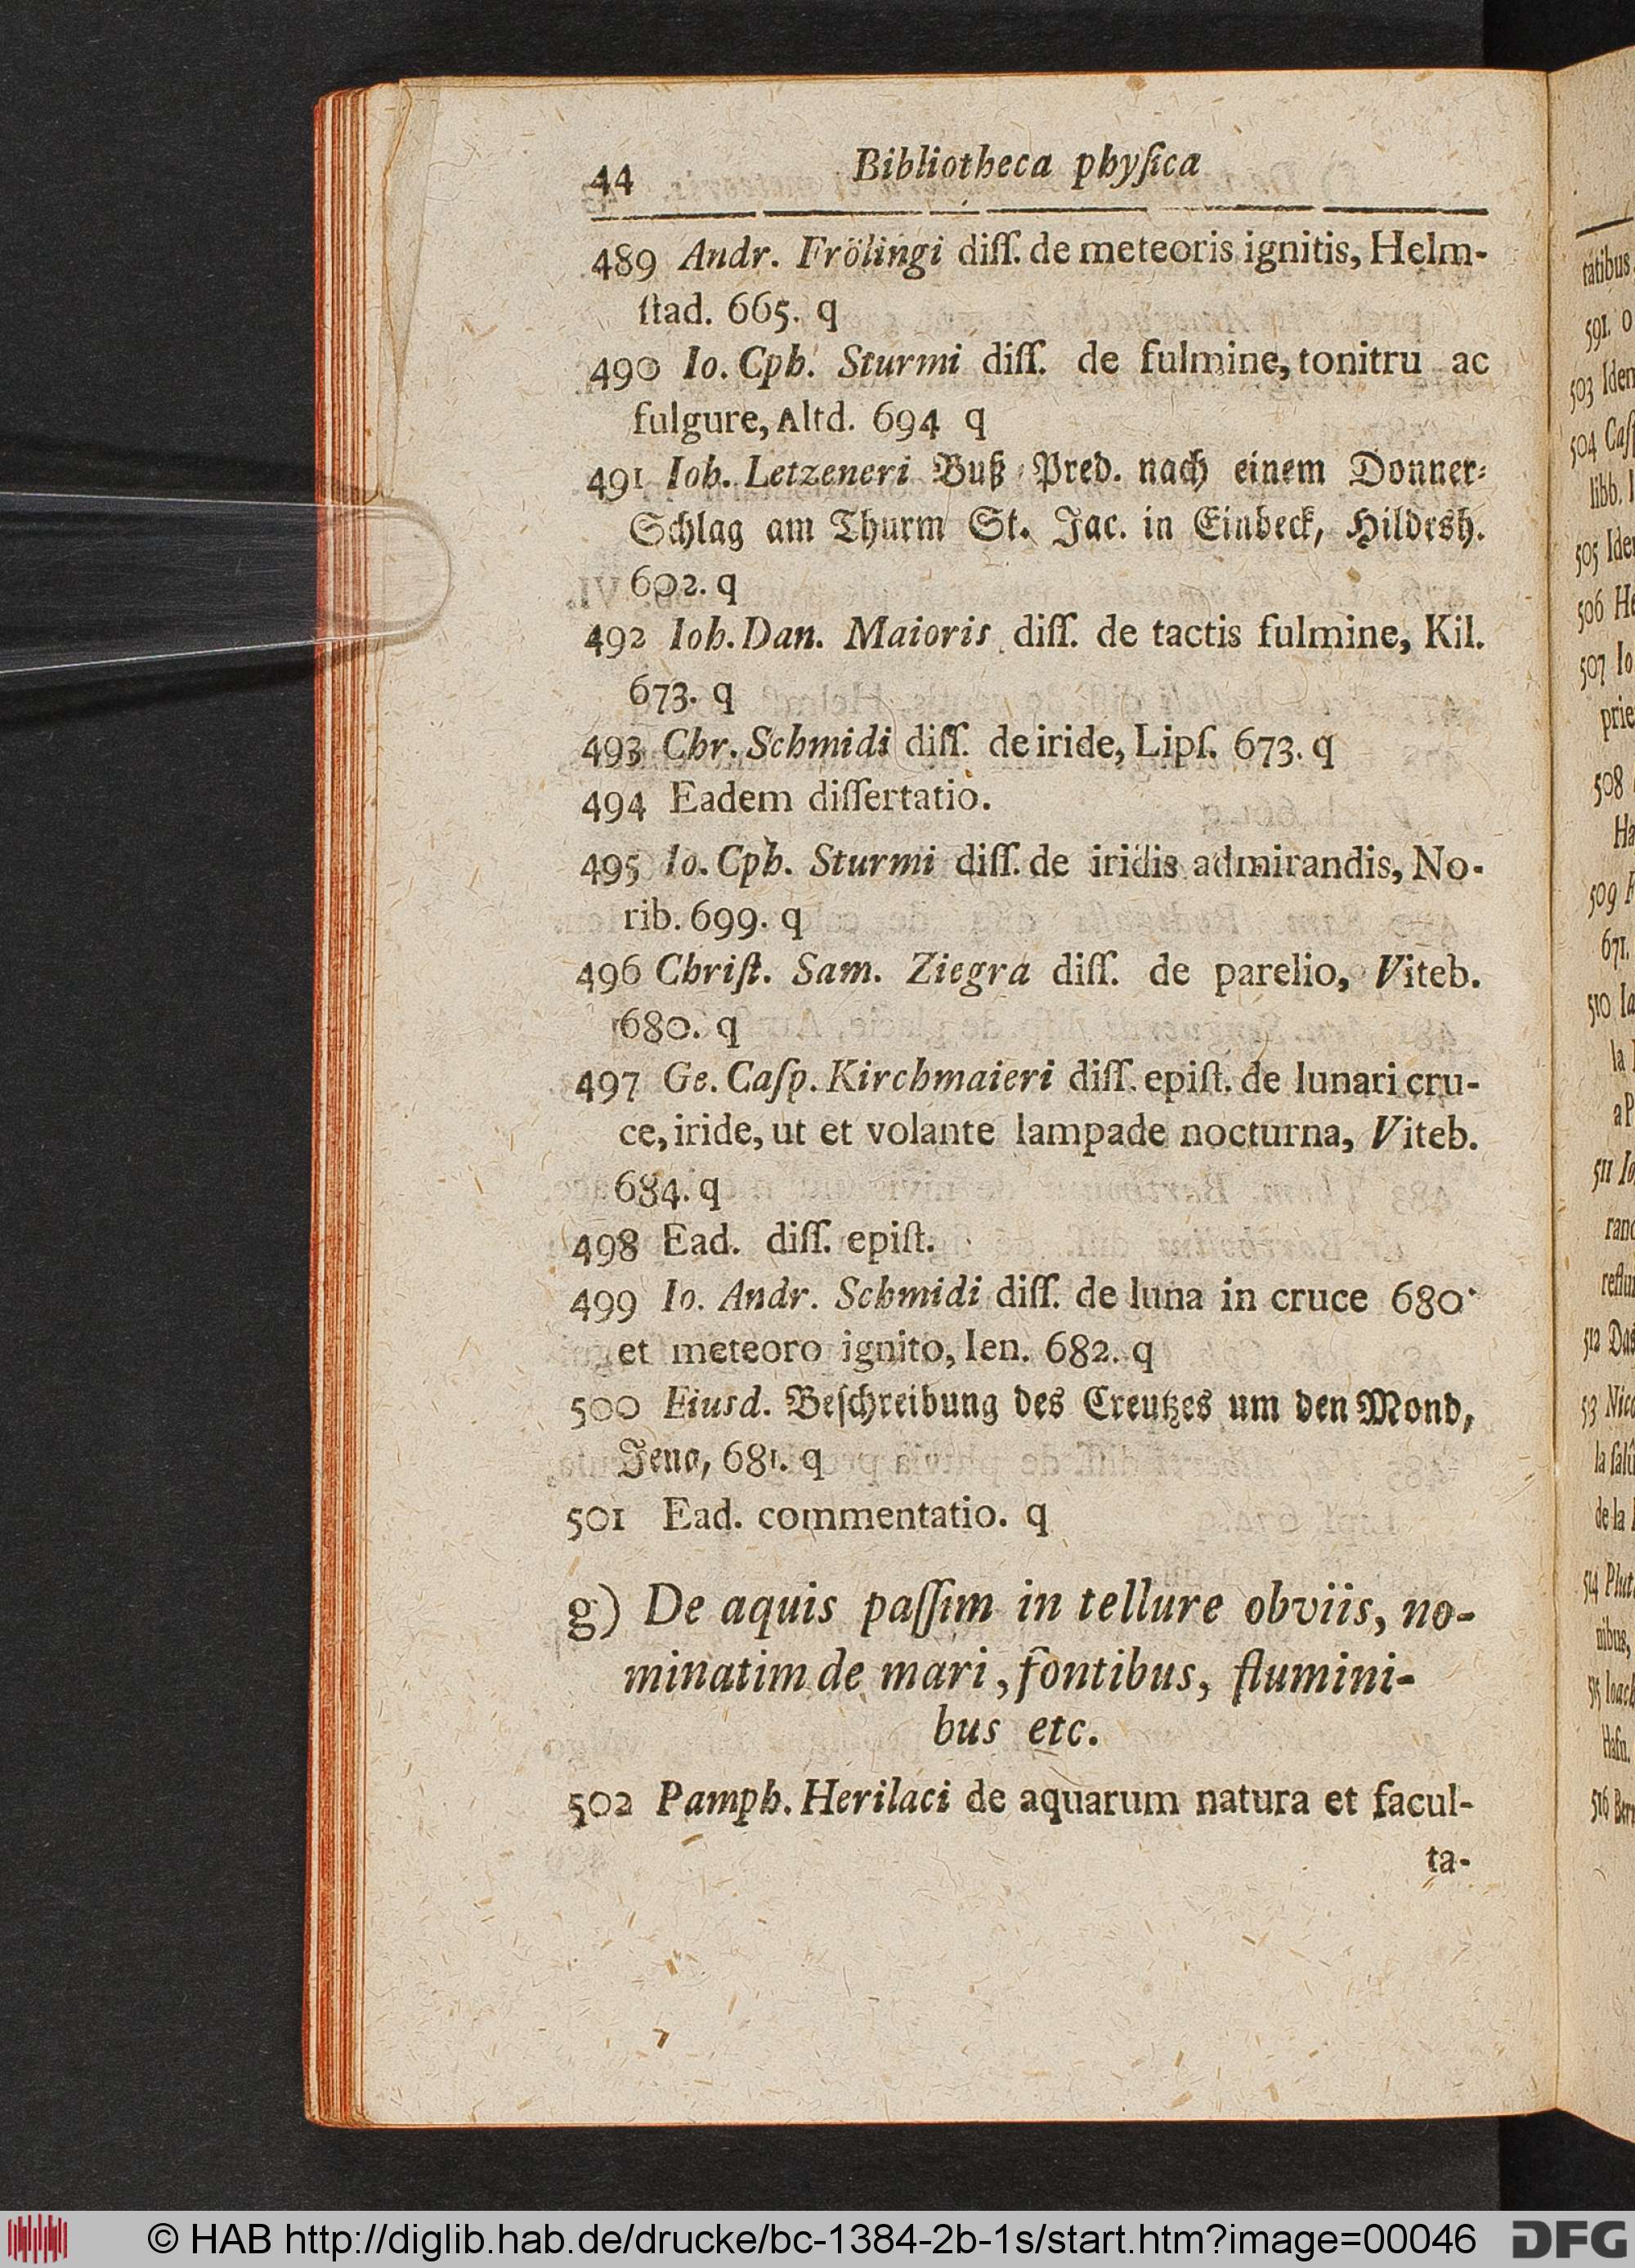 44 Bibliotheca phyſica
489 Andr. Frölingi diſſ. de meteoris ignitis, Helm-
ſtad. 665. q
490 Io. Cph. Sturmi diſſ. de fulmine, tonitru ac
fulgure, Altd. 694 q
491 Ioh. Letzeneri Buß-Pred. nach einem Donner-
Schlag am Thurm St. Jac. in Einbeck, Hildesh.
602. q
492 Ioh. Dan. Maioris diſſ. de tactis fulmine, Kil.
673. q
493 Chr. Schmidi diſſ. de iride, Lipſ. 673. q
494 Eadem diſſertatio.
495 Io. Cph. Sturmi diſſ. de iridis admirandis, No-
rib. 699. q
496 Chriſt. Sam. Ziegra diſſ. de parelio, Viteb.
680. q
497 Ge. Caſp. Kirchmaieri diſſ. epiſt. de lunari cru-
ce, iride, ut et volante lampade nocturna, Viteb.
684. q
498 Ead. diſſ. epiſt.
499 Io. Andr. Schmidi diſſ. de luna in cruce 680.
et meteoro ignito, Ien. 682. q
500 Eiusd. Beſchreibung des Creutzes um den Mond,
Jena, 681. q
501 Ead. commentatio. q
g) De aquis paſſim in tellure obviis, no-
minatim de mari, fontibus, flumini-
bus etc.
502 Pamph. Herilaci de aquarum natura et facul-
ta-
tatibus,
591. o
503 Iden
504 Caſ
libb.
505 Ide
506 He
507 Io
prie
508
Ha
509
671.
510 Ia
la
a P
511 Io
ranc
reflu
512 Das
53 Nico
la ſalu
de la
514 Plut
nibus,
515 Ioach
Hafn.
516 Bern
© HAB http://diglib.hab.de/drucke/bc-1384-2b-1s/start.htm?image=00046 DFG